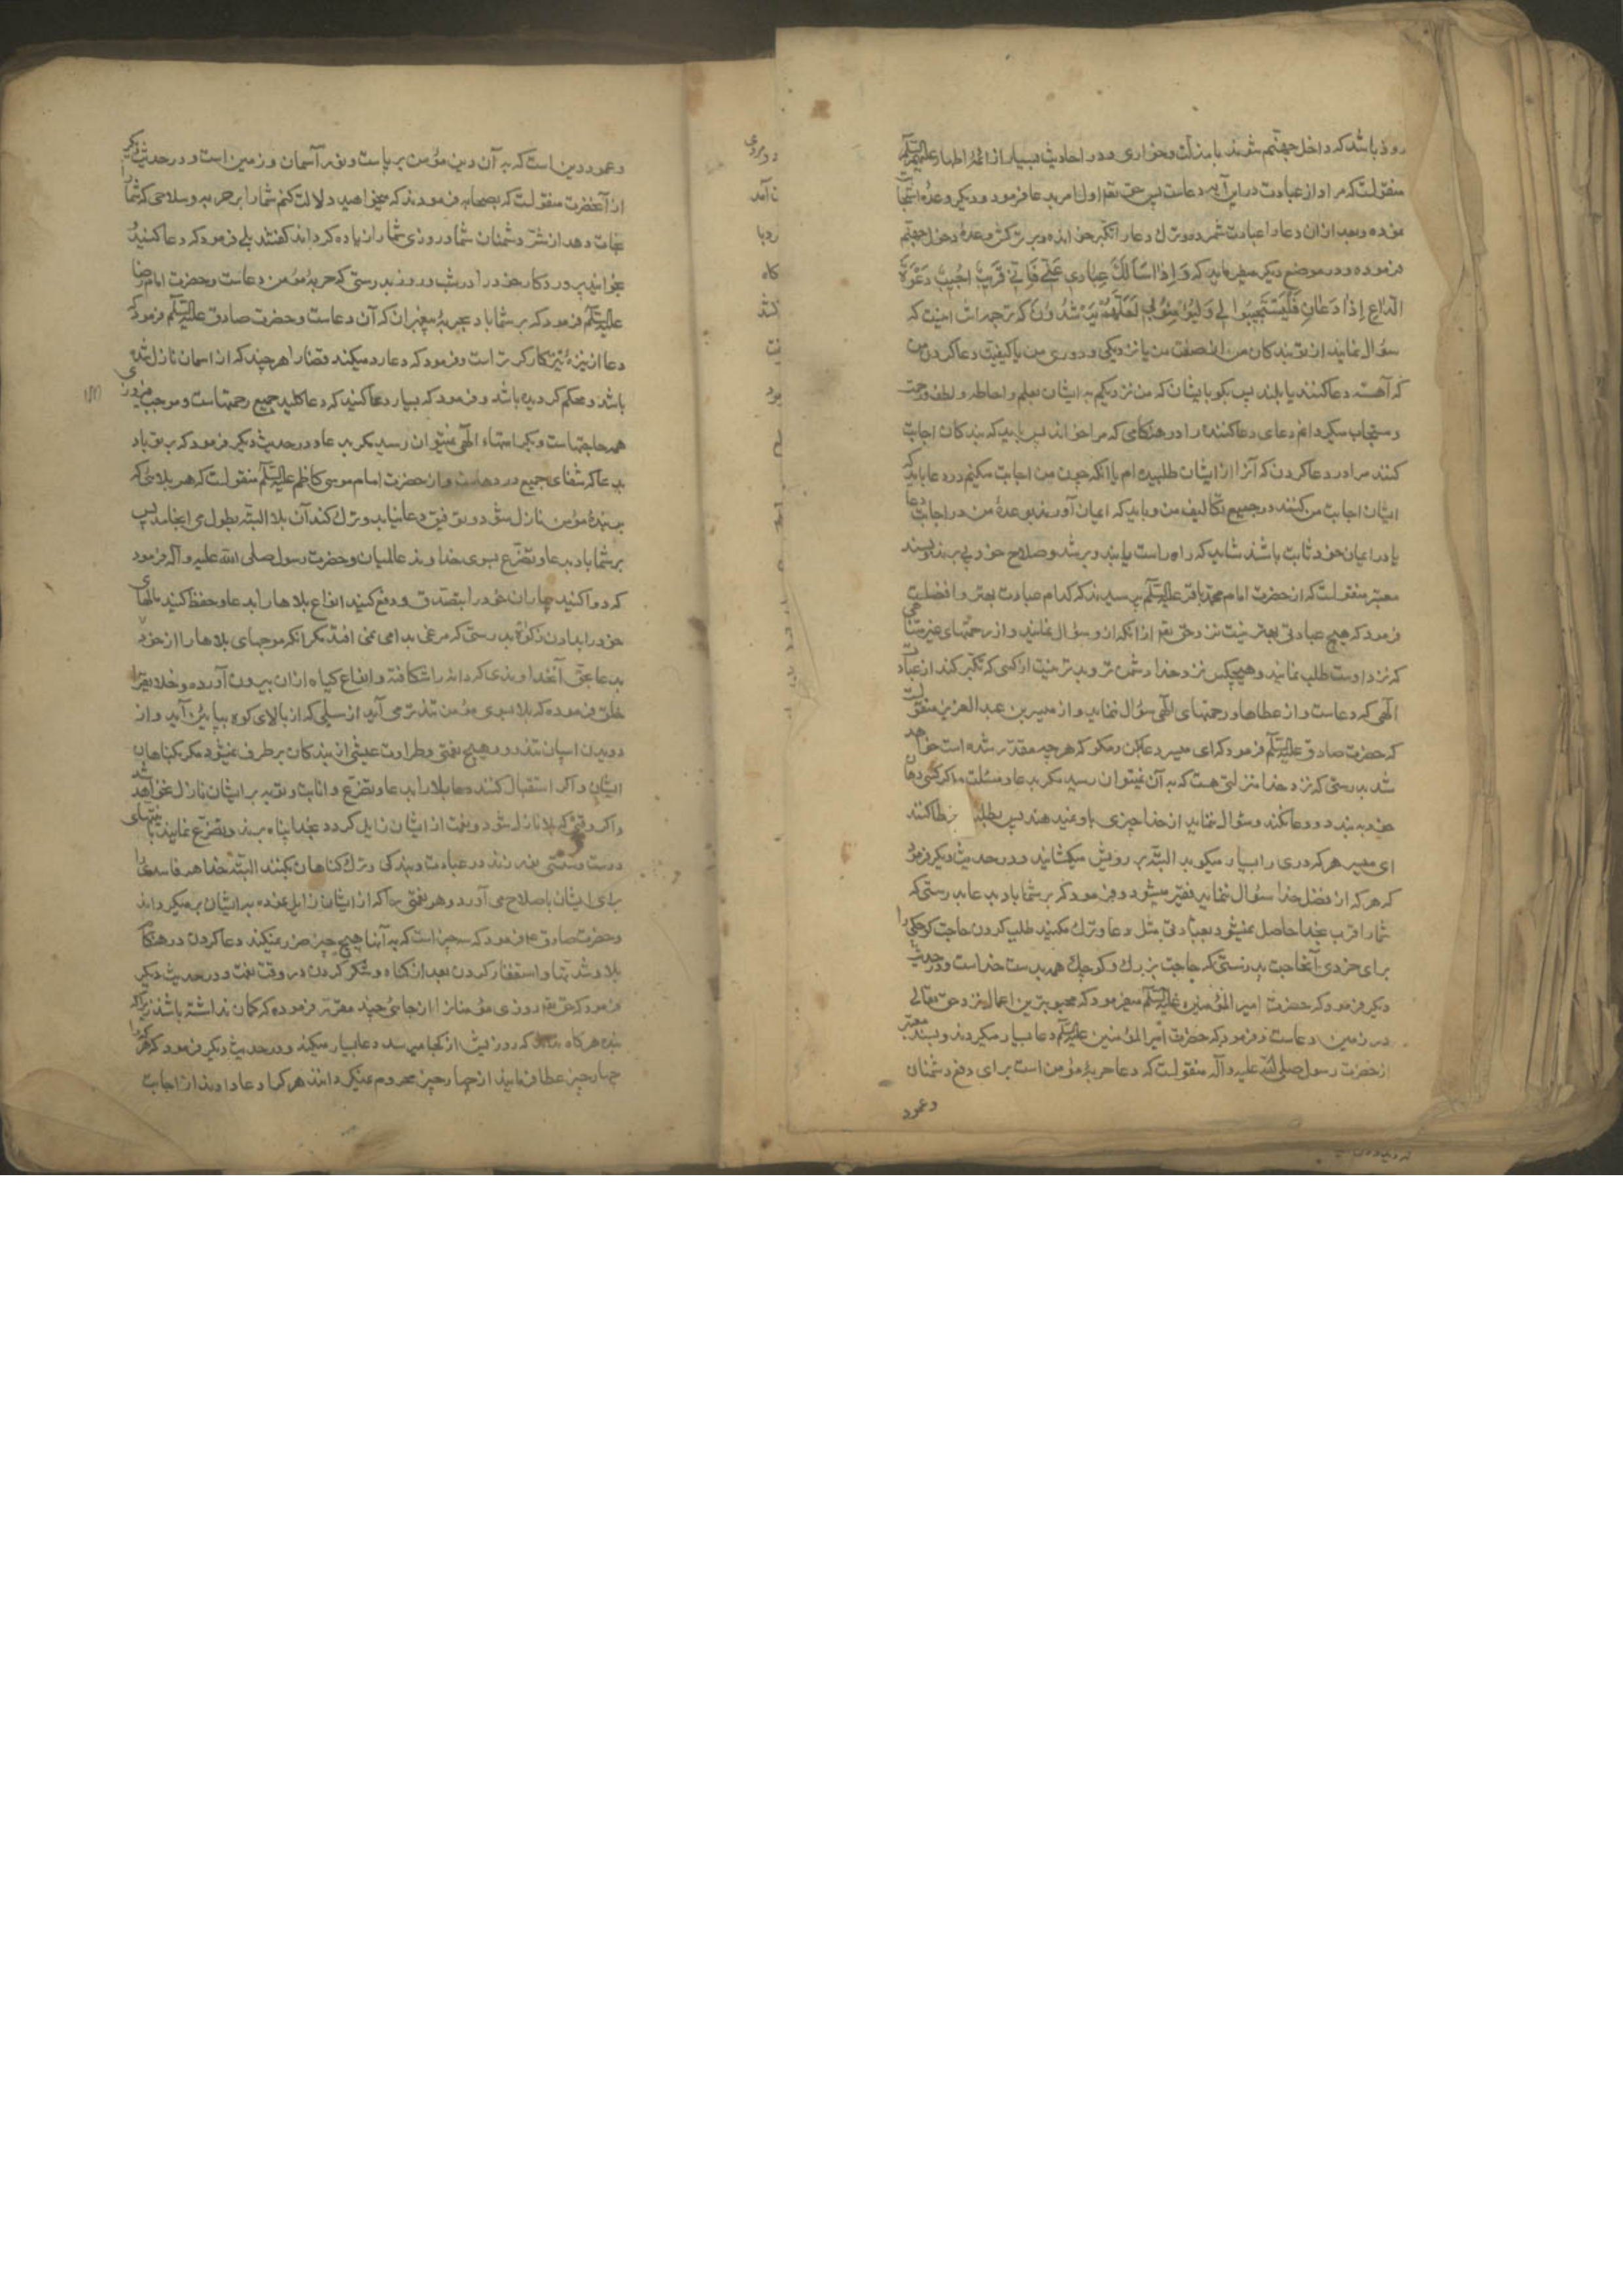 روند باشد که داخل جهنم شوند با مذلت و خواری و در احادیث بسیار از ائمهٔ اطهار علیهم السلام
منقولست که مراد از عبادت در این آیه دعاست پس حق تعم اول امر بدعا فرمود و دیگر وعدهٔ استجابت
نموده و بعد از ان دعا را عبادت شمرده و ترک دعا را تکبر خوانده و بر ترکش وعدهٔ دخول جهنم
فرموده و در موضع دیگر میفرماید که وَاِذَا سَاَلَكَ عِبَادِي عَنِّي فَاِنِّي قَرِيبٌ اُجِيبُ دَعْوَةَ
الدَّاعِ اِذَا دَعَانِ فَلْيَسْتَجِيبُوا لِي وَلْيُؤْمِنُوا بِي لَعَلَّهُمْ يَرْشُدُونَ که ترجمه اش اینست که
سؤال نمایند از تو بندکان من از صفت من یا نزدیکی و دوری من یا کیفیت دعا کردن من
که آهسته دعا کنند یا بلند پس بکو بایشان که من نزدیکم به ایشان بعلم و احاطه و لطف و رحمت
و مستجاب میکردانم دعای دعا کننده را در هنکامی که مرا خواند پس باید که بندکان اجابت
کنند مرا در دعا کردن که آنرا از ایشان طلبیده ام یا انکه چون من اجابت میکنم در دعا باید که
ایشان اجابت من کنند در جمیع تکالیف من و باید که ایمان آورند بوعدهٔ من در اجابت دعا
یا در ایمان خود ثابت باشند شاید که راه راست یابند و برشد و صلاح خود پی برند و بسند
معتبر منقولست که از حضرت امام محمد باقر علیه السلام پرسیدند که کدام عبادت بهتر و افضلست
فرمود که هیچ عبادتی بهتر نیست نزد حق تعم از انکه از و سؤال نمایند و از رحمتهای غیر متناهی
که نزد اوست طلب نمایند و هیچکس نزد خدا دشمن تر و بدتر نیست از کسی که تکبر کند از عبادت
الهی که دعاست و از عطاها و رحمتهای الهی سؤال ننماید و از میسر بن عبد العزیز منقولست
که حضرت صادق علیه السلام فرمود که ای میسر دعا بکن و مکو که هرچه مقدر شده است خواهد
شد بدرستی که نزد خدا منزلتی هست که به آن نمیتوان رسید مکر بدعا و مسئلت و اکر کسی دهان
خود به بندد و دعا نکند و سؤال ننماید از خدا چیزی باو نمیدهند پس بطلب تا عطا کنند
ای میسر هر که دری را بسیار میکوبد البته بر رویش میکشایند و در حدیث دیکر فرمود
که هر که از فضل خدا سؤال ننماید فقیر میشود و فرمود که بر شما باد بدعا بدرستی که
شما را قرب بخدا حاصل نمیشود بعبادتی مثل دعا و ترک مکنید طلب کردن حاجت کوچکی را
برای خردی آنحاجت بدرستی که حاجت بزرک و کوچک همه بدست خداست و در حدیث
دیکر فرمود که حضرت امیر المؤمنین علیه السلام میفرمود که محبوبترین اعمال نزد حق تعالی
در زمین دعاست و فرمود که حضرت امیر المؤمنین علیه السلام دعا بسیار میکردند و بسند معتبر
از حضرت رسول صلی الله علیه و آله منقولست که دعا حربهٔ مؤمن است برای دفع دشمنان
و عمود
و عمود دین است که به آن دین مؤمن بر پاست و نور آسمان و زمین است و در حدیث دیکر
از آنحضرت منقولست که بصحابه فرمودند که میخواهید دلالت کنم شما را بر حربه و سلاحی که شما را
نجات دهد از شر دشمنان شما و روزی شما را زیاده کرداند کفتند بلی فرمود که دعا کنید و
بخوانید پروردکار خود را در شب و روز بدرستی که حربهٔ مؤمن دعاست و حضرت امام رضا
علیه السلام فرمود که بر شما باد بحربهٔ پیغمبران که آن دعاست و حضرت صادق علیه السلام فرمود که
دعا از نیزهٔ تیز کارکر تر است و فرمود که دعا رد میکند قضا را هر چند که از اسمان نازل شده
باشد و محکم کردیده باشد و فرمود که بسیار دعا کنید که دعا کلید جمیع رحمتهاست و موجب فیروزی
همه حاجتهاست و بکرامتهاء الهی نمیتوان رسید مکر بدعا و در حدیث دیکر فرمود که بر تو باد
بدعا که شفای جمیع دردهاست و از حضرت امام موسی کاظم علیه السلام منقولست که هر بلائی که
بر بندهٔ مؤمن نازل شود و توفیق دعا نیابد و ترک کند آن بلا البته بطول می انجامد پس
بر شما باد بدعا و تضرع بسوی خداوند عالمیان و حضرت رسول صلی الله علیه و آله فرمود
که دوا کنید بیماران خود را بتصدق و دفع کنید انواع بلاها را بدعا و حفظ کنید مالهای
خود را بدادن زکوة بدرستی که مرغی بدامی نمی افتد مکر انکه موجهای بلاها را از خود
بدعا بحق آنخداوندی که دانه را شکافته و انواع کیاه از ان بیرون آورده و خلایق را
خلق فرموده که بلا بسوی مؤمن تندتر می آید از سیلی که از بالای کوه بپایین آید و از
دویدن اسپان تندرو و هیچ نعمتی و طراوت عیشی از بندکان برطرف نمیشود مکر بکناهان
ایشان و اکر استقبال کنند بلا را بدعا و تضرع و انابت و توبه بر ایشان نازل نخواهد شد
و اکر وقتی که بلا نازل شود و نعمت از ایشان زایل کردد بخدا پناه برند و تضرع نمایند با نیتهای
درست و سستی نورزند در عبادت و بندکی و ترک کناهان بکنند البته خدا هر فاسدی را
برای ایشان باصلاح می آورد و هر نعمتی را که از ایشان زایل شده به ایشان بر میکرداند
و حضرت صادق ع فرمود که سه چیز است که به آنها هیچ چیز ضرر نمیکند دعا کردن در هنکام
بلا و شدتها و استغفار کردن بعد از کناه و شکر کردن در وقت نعمت و در حدیث دیکر
فرمود که حق تعم روزی مؤمنان را از جائی چند مقرر فرموده که کمان نداشته باشند زیرا که
بنده هرکاه نداند که روزیش از کجا میرسد دعا بسیار میکند و در حدیث دیکر فرمود که هر که را
چهار چیز عطا فرمایند از چهار چیز محروم نمیکردانند هر که را دعا دادند از اجابت